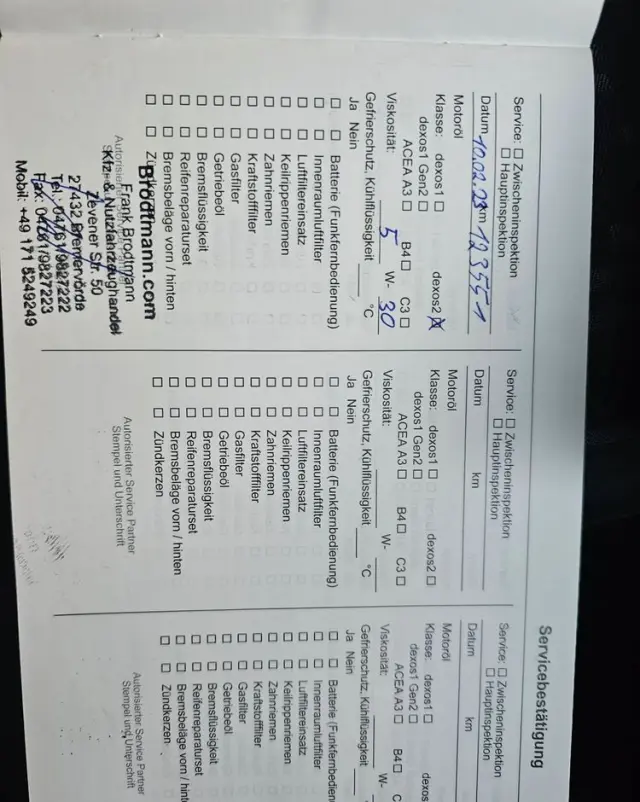 Servicebestätigung
Service: ☐ Zwischeninspektion
☐ Hauptinspektion
Datum 10.02.23 km 123551
Motoröl
Klasse: dexos1 ☐ dexos2 ☒
dexos1 Gen2 ☐
ACEA A3 ☐ B4 ☐ C3 ☐
Viskosität: 5 W- 30
Gefrierschutz, Kühlflüssigkeit ____ °C
Ja Nein
☐ ☐ Batterie (Funkfernbedienung)
☐ ☐ Innenraumluftfilter
☐ ☐ Luftfiltereinsatz
☐ ☐ Keilrippenriemen
☐ ☐ Zahnriemen
☐ ☐ Kraftstofffilter
☐ ☐ Gasfilter
☐ ☐ Getriebeöl
☐ ☐ Bremsflüssigkeit
☐ ☐ Reifenreparaturset
☐ ☐ Bremsbeläge vorn / hinten
☐ ☐
Brodtmann.com
Frank Brodtmann
Kfz- & Nutzfahrzeughandel
Zevener Str. 50
27432 Bremervörde
Tel.: 04761/9827222
Fax: 04761/9827223
Mobil: +49 171 5249249
Service: ☐ Zwischeninspektion
☐ Hauptinspektion
Datum km
Motoröl
Klasse: dexos1 ☐ dexos2 ☐
dexos1 Gen2 ☐
ACEA A3 ☐ B4 ☐ C3 ☐
Viskosität: W-
Gefrierschutz, Kühlflüssigkeit ____ °C
Ja Nein
☐ ☐ Batterie (Funkfernbedienung)
☐ ☐ Innenraumluftfilter
☐ ☐ Luftfiltereinsatz
☐ ☐ Keilrippenriemen
☐ ☐ Zahnriemen
☐ ☐ Kraftstofffilter
☐ ☐ Gasfilter
☐ ☐ Getriebeöl
☐ ☐ Bremsflüssigkeit
☐ ☐ Reifenreparaturset
☐ ☐ Bremsbeläge vorn / hinten
☐ ☐ Zündkerzen
Autorisierter Service Partner
Stempel und Unterschrift
Service: ☐ Zwischeninspektion
☐ Hauptinspektion
Datum km
Motoröl
Klasse: dexos1 ☐ dexos
dexos1 Gen2 ☐
ACEA A3 ☐ B4 ☐ C
Viskosität: W-
Gefrierschutz, Kühlflüssigkeit
Ja Nein
☐ ☐ Batterie (Funkfernbedien
☐ ☐ Innenraumluftfilter
☐ ☐ Luftfiltereinsatz
☐ ☐ Keilrippenriemen
☐ ☐ Zahnriemen
☐ ☐ Kraftstofffilter
☐ ☐ Gasfilter
☐ ☐ Getriebeöl
☐ ☐ Bremsflüssigkeit
☐ ☐ Reifenreparaturset
☐ ☐ Bremsbeläge vorn / hint
☐ ☐ Zündkerzen
Autorisierter Service Partner
Stempel und Unterschrift